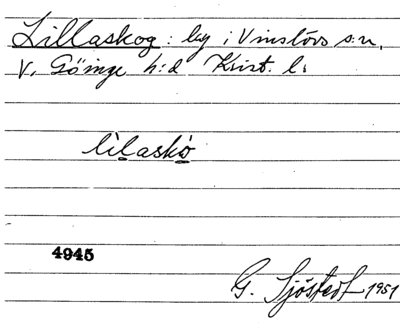 Lillaskog: by i Vinslövs s:n,
V. Göinge h:d Krist. l.
lìlaskò
4945
G. Sjöstedt 1951